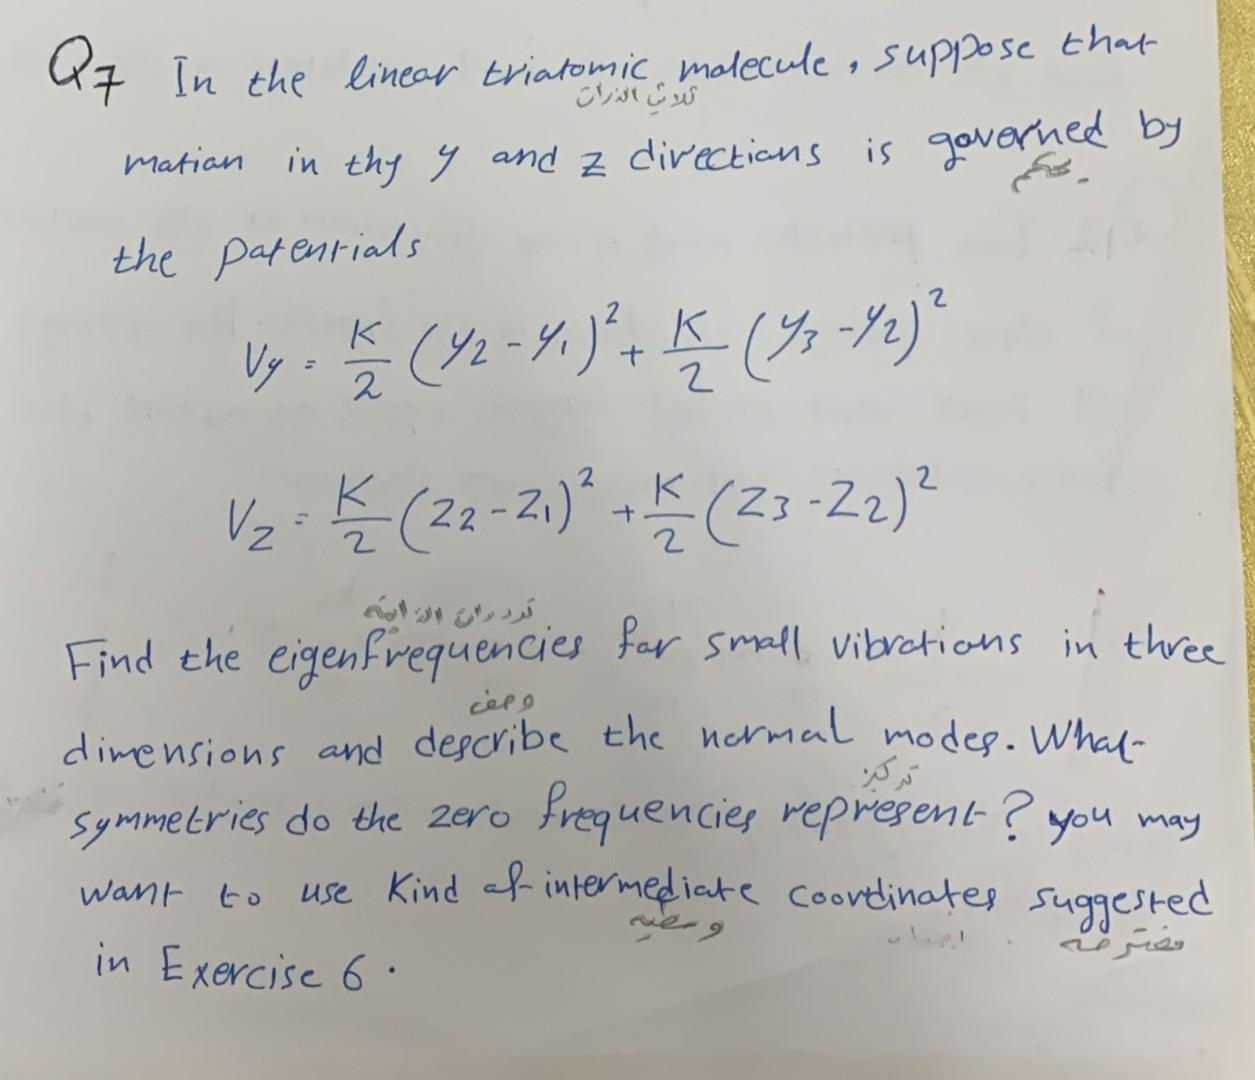 Q7 In the linear triatomic molecule, suppose that
ثلاثي الذرات
motion in thy y and z directions is governed by
the potentials
Vy = K/2 (y2 - y1)² + K/2 (y3 - y2)²
Vz = K/2 (z2 - z1)² + K/2 (z3 - z2)²
ترددات الذاتية
Find the eigenfrequencies for small vibrations in three
وصف
dimensions and describe the normal modes. What
symmetries do the zero frequencies represent? you may
want to use kind of intermediate coordinates suggested
مقترحه
in Exercise 6.